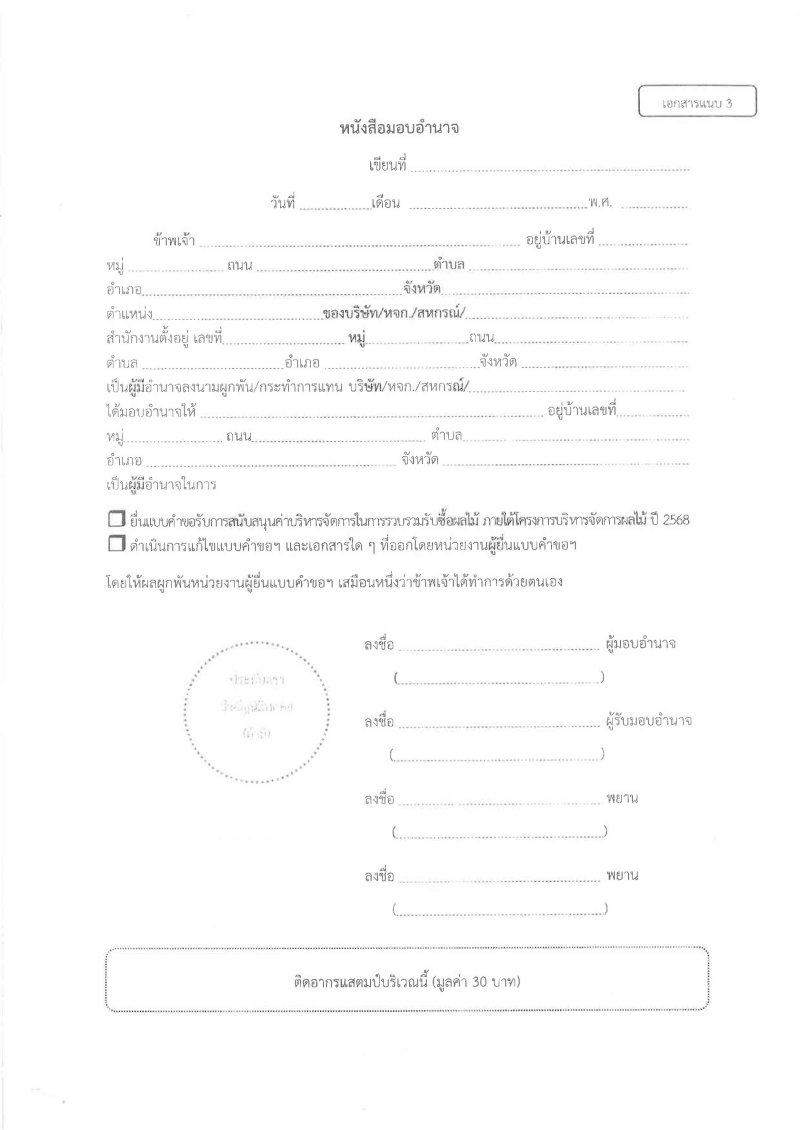 เอกสารแนบ 3
หนังสือมอบอำนาจ
เขียนที่
วันที่ เดือน พ.ศ.
ข้าพเจ้า อยู่บ้านเลขที่
หมู่ ถนน ตำบล
อำเภอ จังหวัด
ตำแหน่ง ของบริษัท/หจก./สหกรณ์/
สำนักงานตั้งอยู่ เลขที่ หมู่ ถนน
ตำบล อำเภอ จังหวัด
เป็นผู้มีอำนาจลงนามผูกพัน/กระทำการแทน บริษัท/หจก./สหกรณ์/
ได้มอบอำนาจให้ อยู่บ้านเลขที่
หมู่ ถนน ตำบล
อำเภอ จังหวัด
เป็นผู้มีอำนาจในการ
ยื่นแบบคำขอรับการสนับสนุนค่าบริหารจัดการในการรวบรวมรับซื้อผลไม้ ภายใต้โครงการบริหารจัดการผลไม้ ปี 2568
ดำเนินการแก้ไขแบบคำขอฯ และเอกสารใด ๆ ที่ออกโดยหน่วยงานผู้ยื่นแบบคำขอฯ
โดยให้ผลผูกพันหน่วยงานผู้ยื่นแบบคำขอฯ เสมือนหนึ่งว่าข้าพเจ้าได้ทำการด้วยตนเอง
ลงชื่อ ผู้มอบอำนาจ
( )
ประทับตรา
ลงชื่อ ผู้รับมอบอำนาจ
( )
ลงชื่อ พยาน
( )
ลงชื่อ พยาน
( )
ติดอากรแสตมป์บริเวณนี้ (มูลค่า 30 บาท)